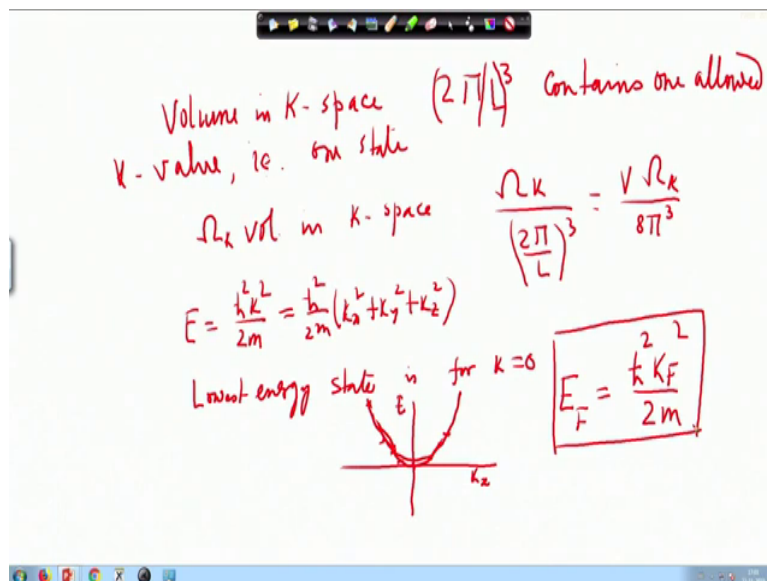 Volume in K-space (2π/L)³ contains one allowed
K-value, ie. one state
Ωₖ vol in K-space Ωₖ/(2π/L)³ = VΩₖ/8π³
E = ħ²k²/2m = ħ²/2m (kₓ² + kᵧ² + k_z²)
Lowest energy state is for K=0
E_F = ħ²K_F²/2m
E
kₓ